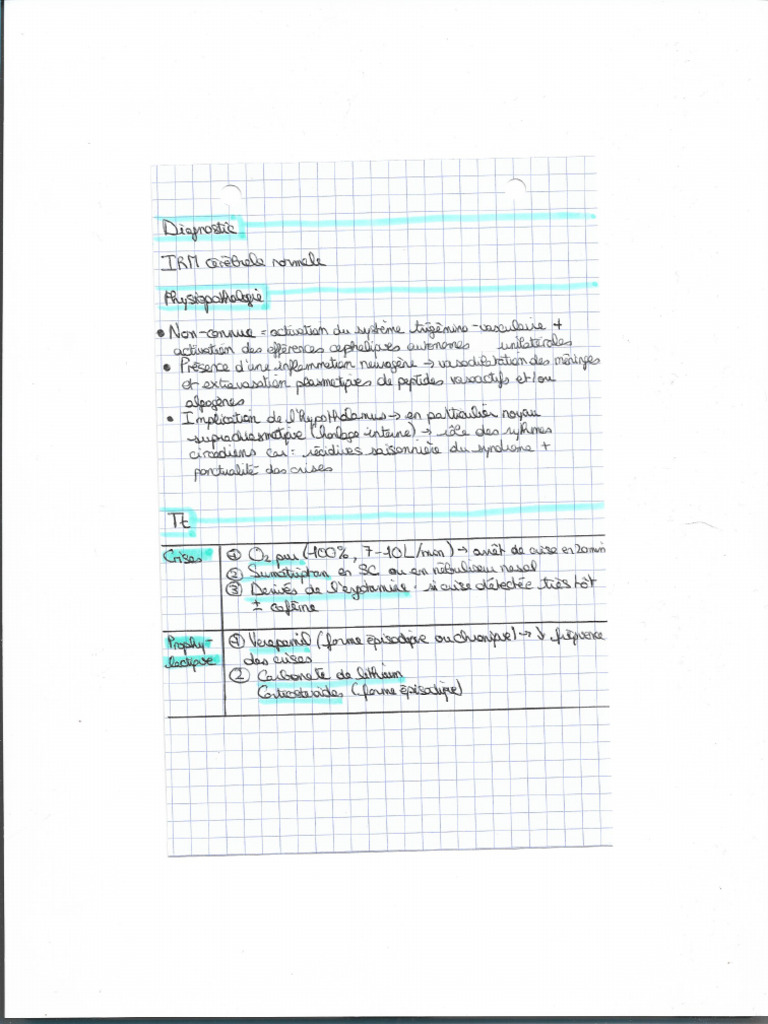 Diagnostic
IRM cérébrale normale
Physiopathologie
• Non-connue = activation du système trigémino-vasculaire +
activation des efférences céphaliques autonomes unilatérales
• Présence d'une inflammation neurogène → vasodilatation des méninges
et extravasation plasmatiques de peptides vasoactifs et/ou
algogènes
• Implication de l'hypothalamus → en particulier noyau
suprachiasmatique (horloge interne) → rôle des rythmes
circadiens car : récidives saisonnière du syndrome +
ponctualité des crises
Tt
Crises
① O2 pur (100%, 7-10L/min) → arrêt de crise en 20min
② Sumatriptan en SC ou en nébuliseur nasal
③ Dérivés de l'ergotamine : si crise détectée très tôt
± caféine
Prophy-
lactique
① Verapamil (forme épisodique ou chronique) → ↓ fréquence
des crises
② Carbonate de lithium
Corticostéroïdes (forme épisodique)